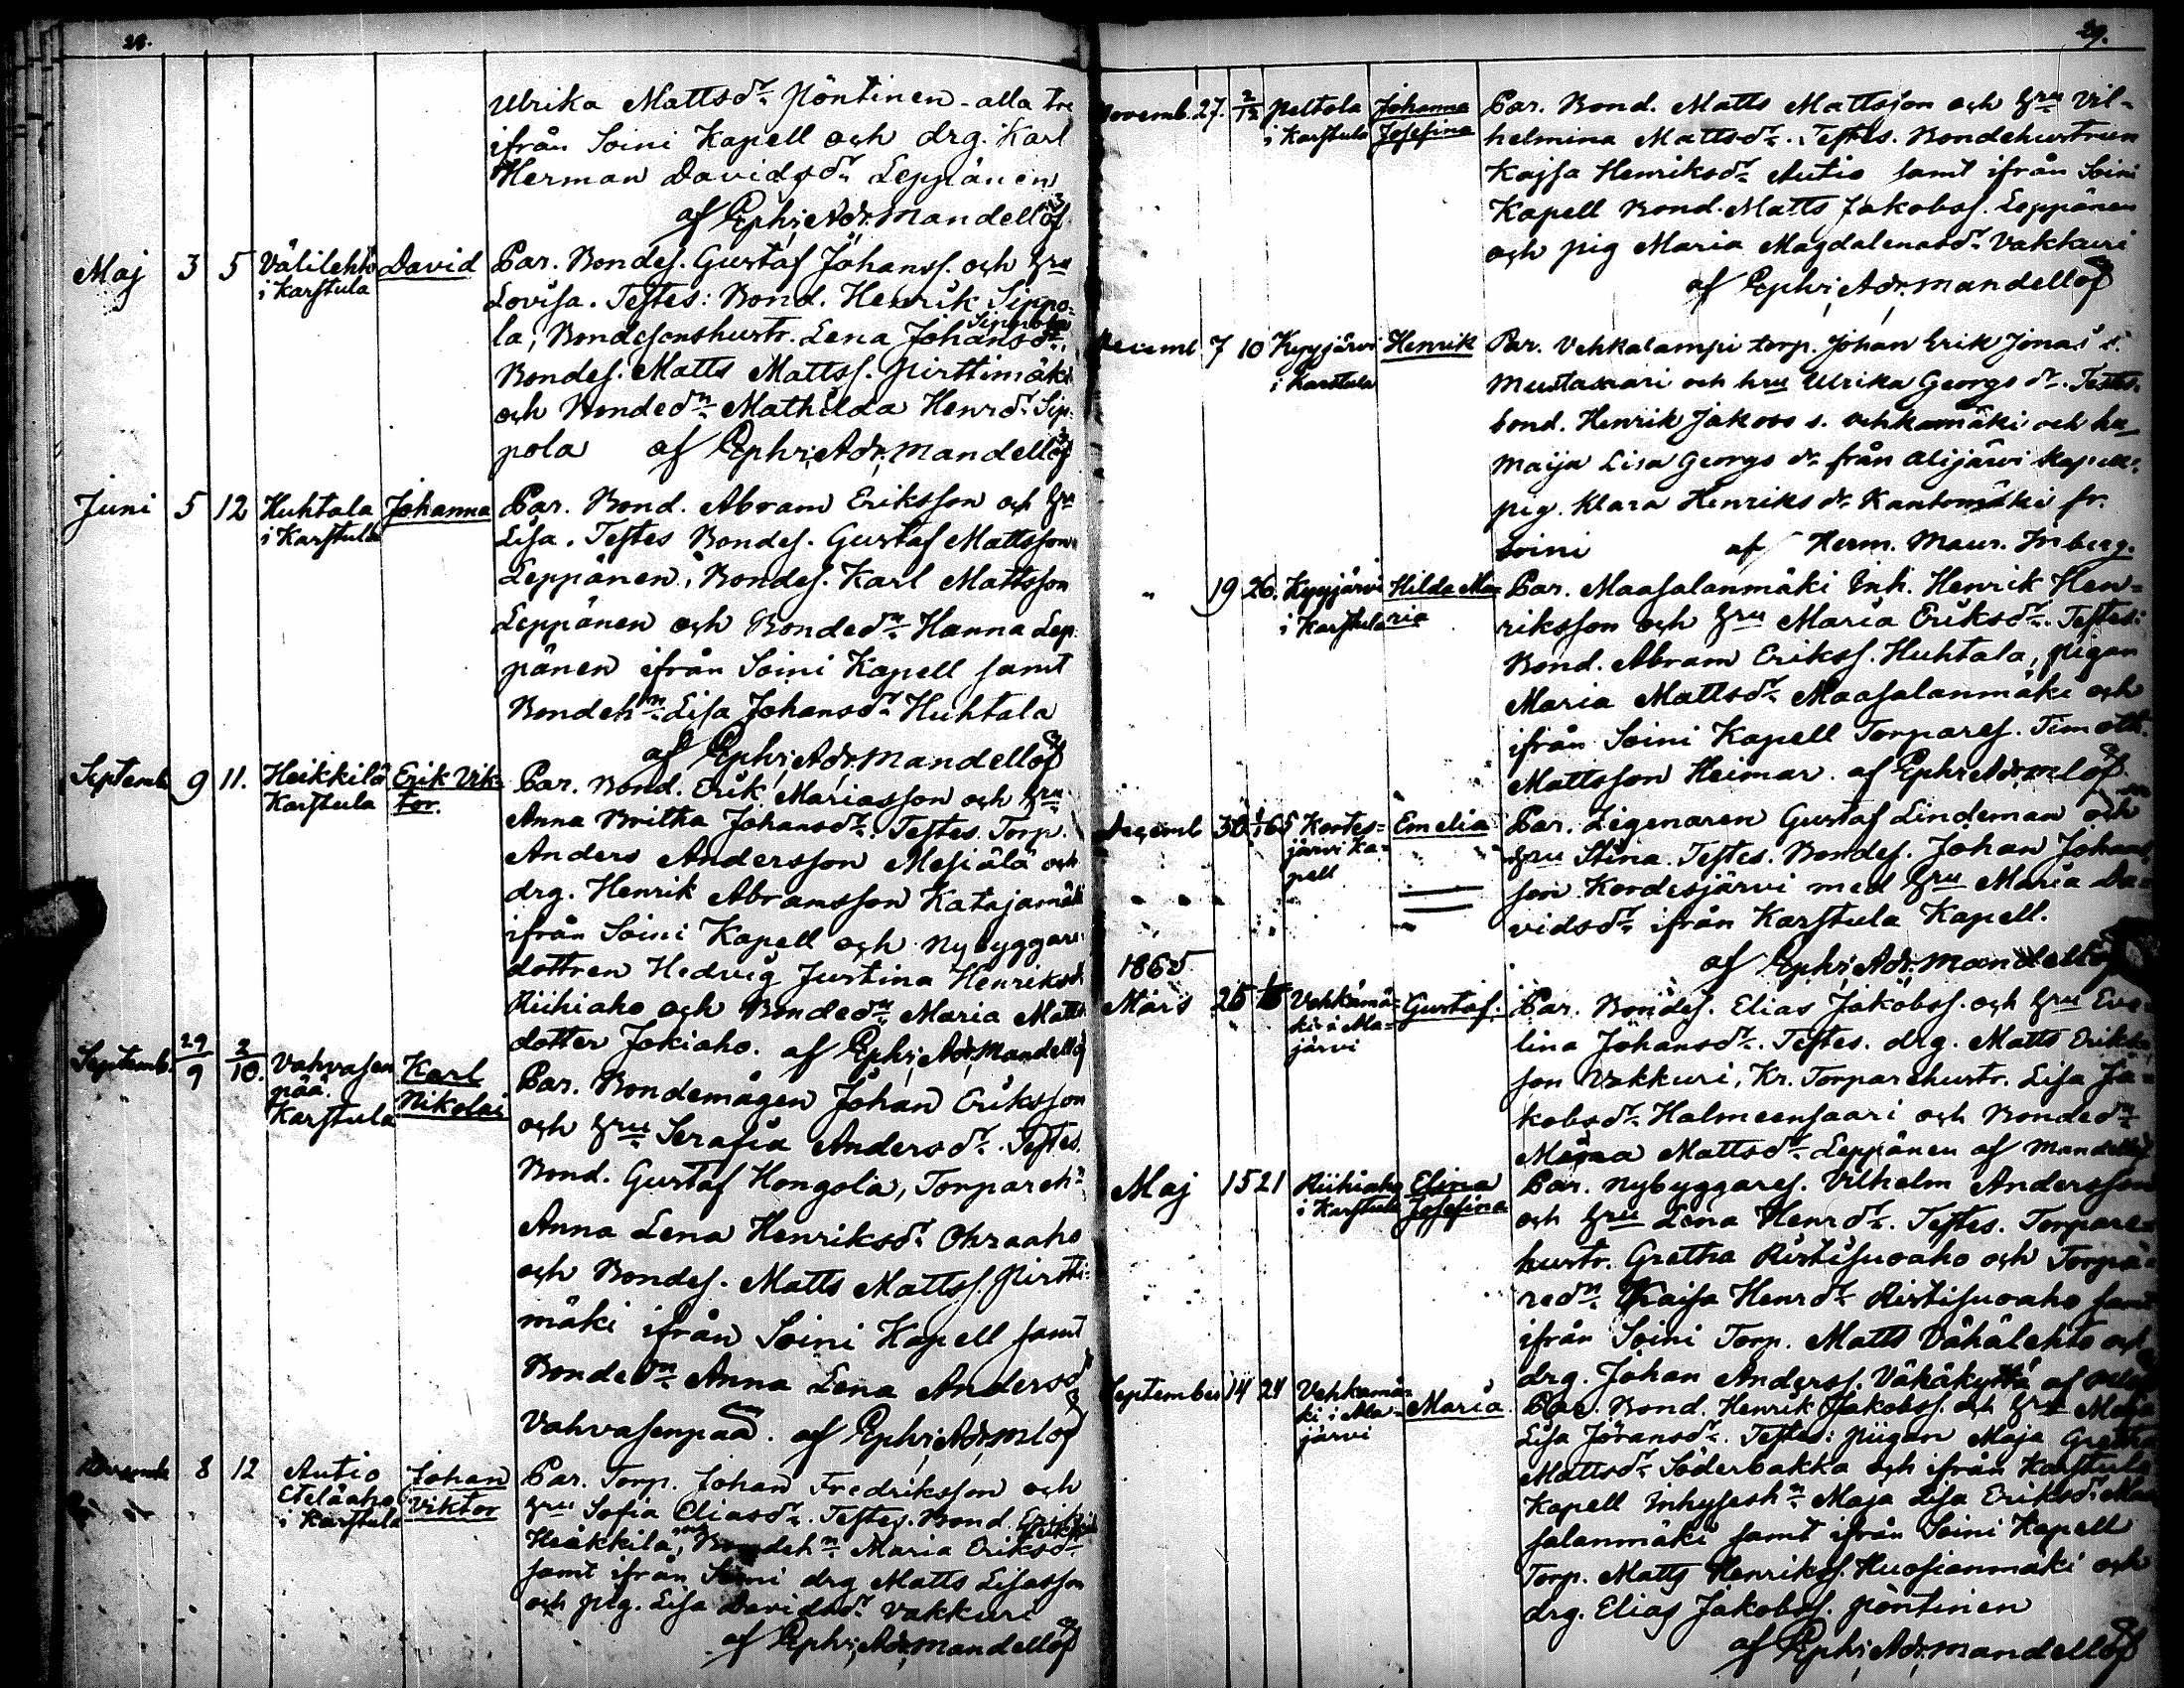 28.
Ulrika Mattsdr. Pöntinen - alla tre
ifrån Soini Kapell och drg. Karl
Herman Davidsdr. Leppänen
af Ephr. Adr. Mandellöf
Maj 3 5 Välilehto David Par. Bondes. Gustaf Johanss. och hru
i Karstula Lovisa. Testes: Bond. Henrik Sippo-
la, Bondesonshustr. Lena Johansdr. Sippola,
Bondes. Matts Mattss. Pirttimäki
och Bonded.n Mathilda Henrdr. Sip-
pola af Ephr. Adr. Mandellöf
Juni 5 12 Huhtala Johanna Par. Bond. Abram Eriksson och hru
i Karstula Lisa. Testes Bondes. Gustaf Mattsson
Leppänen, Bondes. Karl Mattsson
Leppänen och Bonded.n Hanna Lep-
pänen ifrån Soini Kapell samt
Bondeh.n Lisa Johansdr. Huhtala
af Ephr. Adr. Mandellöf
Septemb. 9 11. Heikkilä Erik Vik- Par. Bond. Erik Mariasson och hru
Karstula tor. Anna Britha Johansdr. Testes. Torp.
Anders Andersson Mesiälä och
drg. Henrik Abramsson Katajamäki
ifrån Soini Kapell och Nybyggare-
dottren Hedvig Justina Henriksdr.
Riihiaho och Bonded.n Maria Matts-
dotter Jokiaho. af Ephr. Adr. Mandellöf
Septemb. 29/9 2/10. Vahvasen Karl Par. Bondemågen Johan Eriksson
pää. Karstula Nikolai och hru Serafia Andersdr. Testes.
Bond. Gustaf Hongola, Torpareh.n
Anna Lena Henriksdr. Ohraaho
och Bondes. Matts Mattss. Pirtti-
mäki ifrån Soini Kapell samt
Bonded.n Anna Lena Andersdr
Vahvasenpää. af Ephr. Adr. Mlöf
8 12 Autio Johan Par. Torp. Johan Fredriksson och
Eteläaho Viktor hru Sofia Eliasdr. Testes. Bond. Erik
i Karstula Heikkilä, Bondeh.n Maria Eriksdr.
samt ifrån Soini drg Matts Lisasson
och pig. Lisa Davidsdr. Vakkuri
af Ephr. Adr. Mandellöf
29.
Novemb. 27. 2/12 Peltola Johanna Par. Bond. Matts Mattsson och hru Vil-
i Karstula Josefina helmina Mattsdr. Testes. Bondehustrun
Kajsa Henriksdr. Autio samt ifrån Soini
Kapell Bond. Matts Jakobss. Leppänen
och pig Maria Magdalenasdr. Vakkuri
af Ephr. Adr. Mandellöf
Decemb. 7 10 Kyyjärvi Henrik Par. Vehkalampi torp. Johan Erik Jonas s.
i Karstula Mustasaari och hru Ulrika Georgs dr. Testes.
bond. Henrik Jakobs s. Vehkamäki och hu
Maija Lisa Georgs dr från Alijärvi Kapell,
pig. Klara Henriks dr Kantomäki fr.
Soini af Herm. Maur. Inberg.
" 19 26. Kyyjärvi Hilda Ma- Par. Maasalanmäki Inh. Henrik Hen-
i Karstula ria riksson och hru Maria Eriksdr. Testes:
Bond. Abram Erikss. Huhtala, pigan
Maria Mattsdr. Maasalanmäki och
ifrån Soini Kapell Torpares. Timoth.
Mattsson Heimar. af Ephr. Adr. Mlöf
Decemb 30 1/1 65 Kortes- Emelia Par. Legenaren Gustaf Lindeman och
järvi Ka- hru Stina. Testes. Bondes. Johan Johans-
pell son Kordesjärvi med hru Maria Da-
vidsdr. ifrån Karstula Kapell.
af Ephr. Adr. Mandellöf
1865
Mars 25 Vehkamä- Gustaf. Par. Bondes. Elias Jakobss. och hru Eve-
ki i Ala- lina Johansdr. Testes. drg. Matts Eriks-
järvi son Vakkuri, Kr. Torparehustr. Lisa Ja-
kobsdr. Halmeensaari och Bonded.n
Mattsdr. Leppänen af Mandellöf
Maj 15 21 Riihiaho Elina Par. Nybyggares. Vilhelm Andersson
i Karstula Josefina och hru Lena Henrdr. Testes. Torpare-
hustr. Gretha Ristisuoaho och Torpa-
red.n Kaisa Henrdr. Ristisuoaho samt
ifrån Soini Torp. Matts Vähälehto och
drg. Johan Anderss. Vähäkyttä af Mlöf
September 14 24 Vehkamä- Maria Par. Bond. Henrik Jakobss. och hru Maja
ki i Ala- Lisa Jöransdr. Testes: pigan Maja Gretha
järvi Mattsdr. Söderbakka och ifrån Karstula
Kapell Inhysesh.n Maja Lisa Eriksdr. Maa-
salanmäki samt ifrån Soini Kapell
Torp. Matts Henrikss. Huosianmäki och
drg. Elias Jakobss. Pöntinen
af Ephr. Adr. Mandellöf